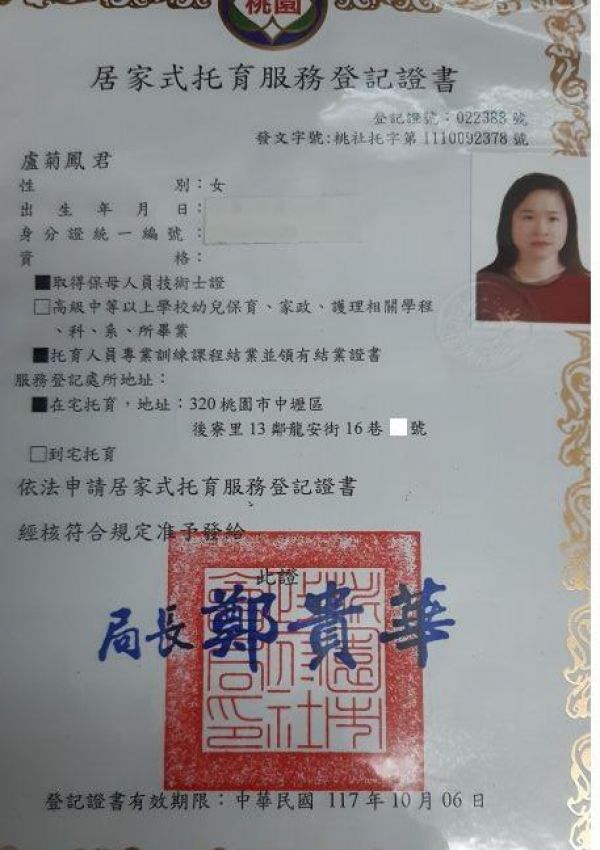 桃園
居家式托育服務登記證書
登記證號：022388 號
發文字號:桃社托字第 1110092378 號
盧菊鳳 君
性 別：女
出生年月日：
身分證統一編號：
資 格：
■取得保母人員技術士證
□高級中等以上學校幼兒保育、家政、護理相關學程
、科、系、所畢業
■托育人員專業訓練課程結業並領有結業證書
服務登記處所地址：
■在宅托育，地址：320 桃園市中壢區
後寮里 13 鄰龍安街 16 巷 號
□到宅托育
依法申請居家式托育服務登記證書
經核符合規定准予發給
此證
局長 鄭貴華
登記證書有效期限：中華民國 117 年 10 月 06 日